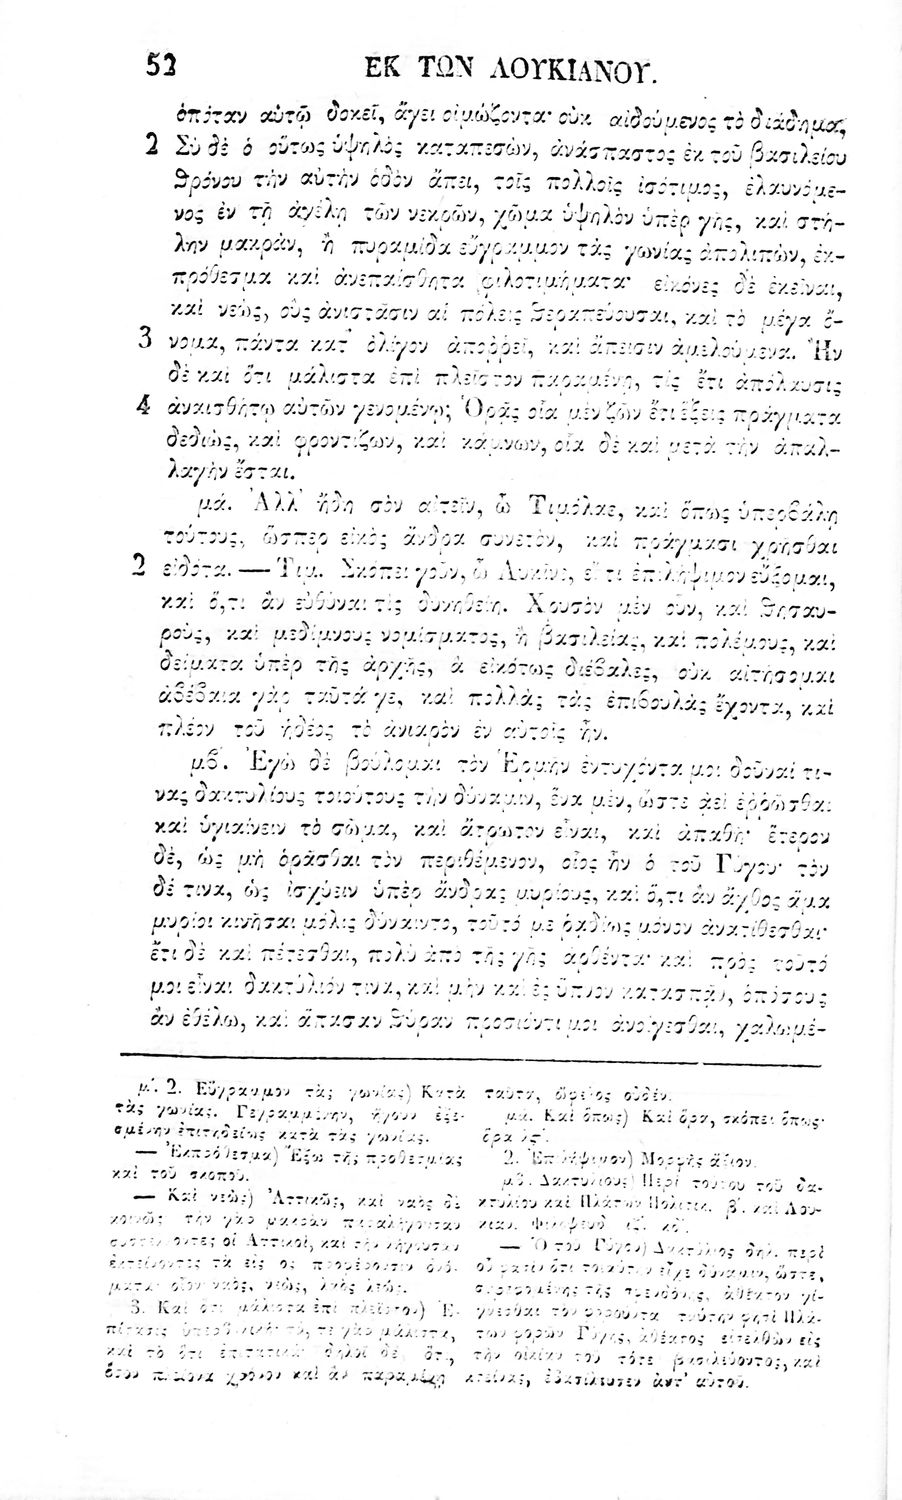 52 ΕΚ ΤΩΝ ΛΟΥΚΙΑΝΟΥ.
ὁπόταν αὐτῷ δοκεῖ, ἄγει οἰμώζοντα· οὐκ αἰδούμενος τὸ διάδημα,
2 Σὺ δὲ ὁ οὕτως ὑψηλὸς καταπεσὼν, ἀνάσπαστος ἐκ τοῦ βασιλείου
θρόνου τὴν αὐτὴν ὁδὸν ἄπει, τοῖς πολλοῖς ἰσότιμος, ἐλαυνόμε-
νος ἐν τῇ ἀγέλῃ τῶν νεκρῶν, χῶμα ὑψηλὸν ὑπὲρ γῆς, καὶ στή-
λην μακρὰν, ἢ πυραμίδα εὔγραμμον τὰς γωνίας ἀπολιπὼν, ἐκ-
πρόθεσμα καὶ ἀνεπαίσθητα φιλοτιμήματα· εἰκόνες δὲ ἐκεῖναι,
καὶ νεὼς, οὓς ἀνιστᾶσιν αἱ πόλεις θεραπεύουσαι, καὶ τὸ μέγα ὄ-
3 νομα, πάντα κατ' ὀλίγον ἀποῤῥεῖ, καὶ ἄπεισιν ἀμελούμενα. Ἢν
δὲ καὶ ὅτι μάλιστα ἐπὶ πλεῖστον παραμένῃ, τίς ἔτι ἀπόλαυσις
4 ἀναισθήτῳ αὐτῶν γενομένῳ; Ὁρᾷς οἷα μὲν ζῶν ἔτι ἕξεις πράγματα
δεδιὼς, καὶ φροντίζων, καὶ κάμνων, οἷα δὲ καὶ μετὰ τὴν ἀπαλ-
λαγὴν ἔσται.
μά. Ἀλλ' ἤδη σὸν αἰτεῖν, ὦ Τιμόλαε, καὶ ὅπως ὑπερβάλῃ
τούτους, ὥσπερ εἰκὸς ἄνδρα συνετὸν, καὶ πράγμασι χρῆσθαι
2 εἰδότα. — Τιμ. Σκόπει γοῦν, ὦ Λυκῖνε, εἴ τι ἐπιλήψιμον εὔξομαι,
καὶ ὅ,τι ἂν εὐθύναι τὶς δυνηθείη. Χρυσὸν μὲν οὖν, καὶ θησαυ-
ροὺς, καὶ μεδίμνους νομίσματος, ἢ βασιλείας, καὶ πολέμους, καὶ
δείματα ὑπὲρ τῆς ἀρχῆς, ἃ εἰκότως διέβαλες, οὐκ αἰτήσομαι
ἀβέβαια γὰρ ταῦτά γε, καὶ πολλὰς τὰς ἐπιβουλὰς ἔχοντα, καὶ
πλέον τοῦ ἡδέος τὸ ἀνιαρὸν ἐν αὐτοῖς ἦν.
μβ'. Ἐγὼ δὲ βούλομαι τὸν Ἑρμῆν ἐντυχόντα μοι δοῦναί τι-
νας δακτυλίους τοιούτους τὴν δύναμιν, ἕνα μὲν, ὥστε ἀεὶ ἐῤῥῶσθαι
καὶ ὑγιαίνειν τὸ σῶμα, καὶ ἄτρωτον εἶναι, καὶ ἀπαθῆ· ἕτερον
δὲ, ὡς μὴ ὁρᾶσθαι τὸν περιθέμενον, οἷος ἦν ὁ τοῦ Γύγου· τὸν
δέ τινα, ὡς ἰσχύειν ὑπὲρ ἄνδρας μυρίους, καὶ ὅ,τι ἂν ἄχθος ἅμα
μυρίοι κινῆσαι μόλις δύναιντο, τοῦτό με ῥᾳδίως μόνον ἀνατίθεσθαι·
ἔτι δὲ καὶ πέτεσθαι, πολὺ ἀπὸ τῆς γῆς ἀρθέντα· καὶ πρὸς τοῦτό
μοι εἶναι δακτύλιόν τινα, καὶ μὴν καὶ ἐς ὕπνον κατασπᾷν, ὁπόσους
ἂν ἐθέλω, καὶ ἅπασαν θύραν προσιόντι μοι ἀνοίγεσθαι, χαλωμέ-
μ'. 2. Εὔγραμμον τὰς γωνίας) Κατὰ
τὰς γωνίας. Γεγραμμένην, ἤγουν ἐξε-
σμένην ἐπιτηδείως κατὰ τὰς γωνίας.
— Ἐκπρόθεσμα) Ἔξω τῆς προθεσμίας
καὶ τοῦ σκοποῦ.
— Καὶ νεὼς) Ἀττικῶς, καὶ ναὸς δὲ
κοινῶς· τὴν γὰρ μακρὰν παραλήγουσαν
οἱ Ἀττικοὶ, καὶ τὴν λήγουσαν
ἐκτείνοντες τὰ εἰς ος προφέρουσιν ὀνό-
ματα· οἷον ναὸς, νεὼς, λαὸς λεώς.
3. Καὶ ὅτι μάλιστα ἐπὶ πλεῖστον) Ἐ-
πίτασις τό, τε γὰρ μάλιστα,
καὶ τὸ ὅτι ἐπιτατικὰ· δηλοῖ δὲ, ὅτι,
χρόνον καὶ ἂν παραμένῃ
ταῦτα, ὄφελος οὐδέν.
μά. Καὶ ὅπως) Καὶ ὅρα, σκόπει ὅπως·
ὅρα
2. Ἐπιλήψιμον) Μομφῆς ἄξιον.
μβ'. Δακτυλίους) Περὶ τούτου τοῦ δα-
κτυλίου καὶ Πλάτων Πολιτικ. β'. καὶ Λου-
κιαν. Φιλοψευδ.
— Ὁ τοῦ Γύγου) Δακτύλιος δηλ. περὶ
οὗ φασὶν ὅτι τοιαύτην εἶχε δύναμιν, ὥστε,
στρεφομένης τῆς σφενδόνης, ἀθέατον γί-
γνεσθαι τὸν φοροῦντα· ταύτην φησὶ Πλά-
των φορῶν Γύγης, ἀθέατος εἰσελθὼν εἰς
τὴν οἰκίαν τοῦ τότε βασιλεύοντος, καὶ
κτείνας, ἐβασίλευσεν ἀντ' αὐτοῦ.